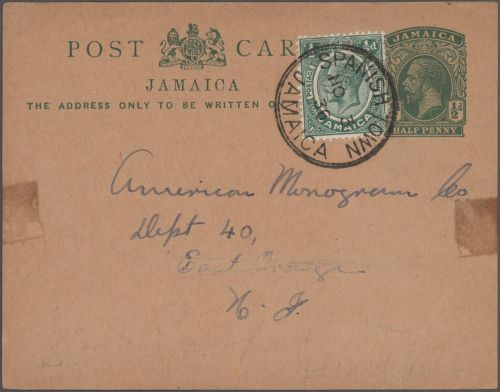 POST CAR
½d
JAMAICA
½d
HALF PENNY
JAMAICA
THE ADDRESS ONLY TO BE WRITTEN O
POSTAGE
JAMAICA
SPANISH TOWN
JAMAICA
NO
36
American Monogram Co
Dept 40,
East Orange
N. J.